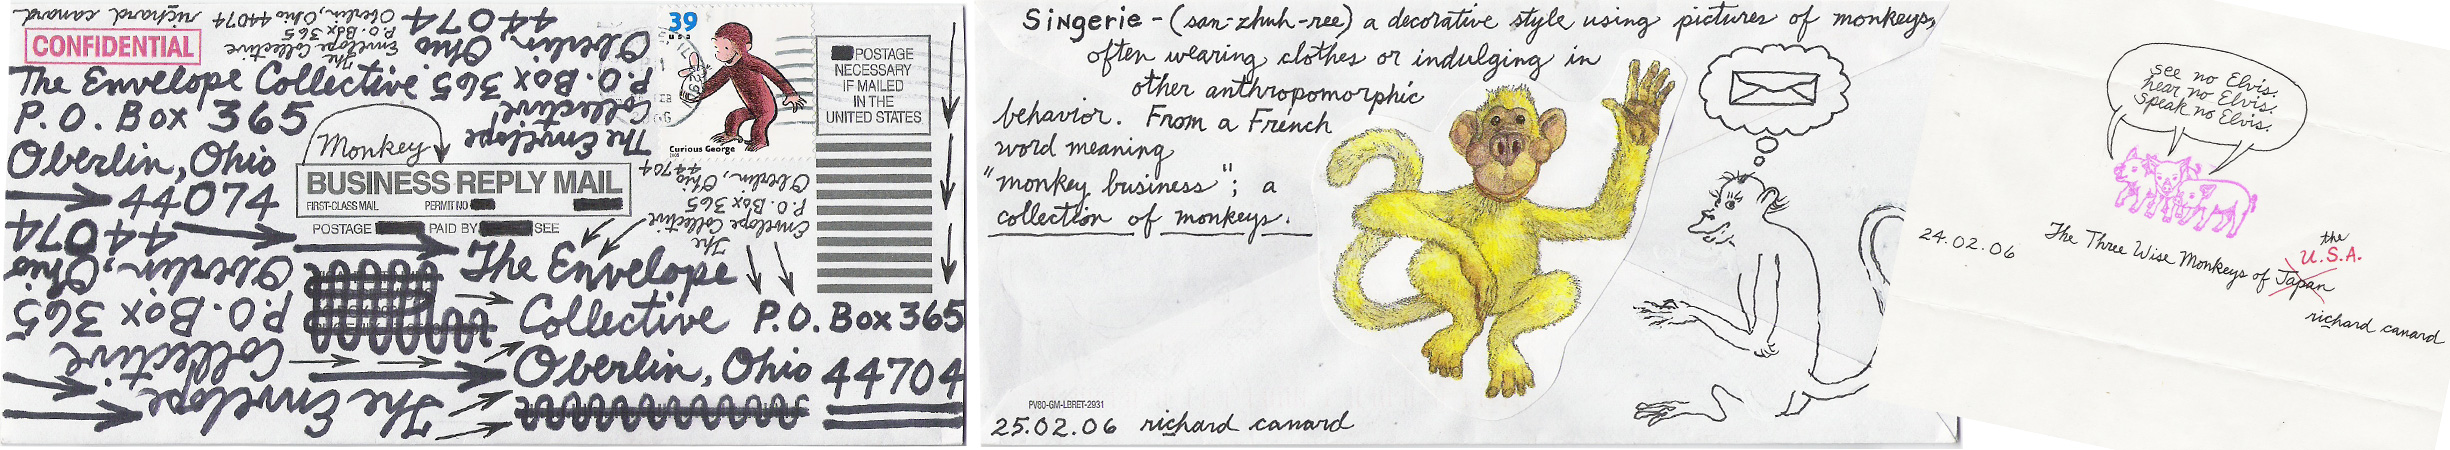 richard canard
The Envelope Collective
P.O. Box 365
Oberlin, Ohio 44074
The Envelope
Collective
P.O. Box 365
Oberlin, Ohio
44074
CONFIDENTIAL
The Envelope Collective
P.O. Box 365
Oberlin, Ohio
44074
39
USA
Curious George
POSTAGE
NECESSARY
IF MAILED
IN THE
UNITED STATES
Monkey
BUSINESS REPLY MAIL
FIRST-CLASS MAIL PERMIT NO
POSTAGE PAID BY SEE
The
Envelope Collective
P.O. Box 365
Oberlin, Ohio
44704
The Envelope
Collective
P.O. Box 365
Oberlin, Ohio
44074
The Envelope
Collective P.O. Box 365
Oberlin, Ohio 44704
Singerie - (san-zhuh-ree) a decorative style using pictures of monkeys,
often wearing clothes or indulging in
other anthropomorphic
behavior. From a French
word meaning
"monkey business"; a
collection of monkeys.
PV80-GM-LBRET-2931
25.02.06 richard canard
see no Elvis.
hear no Elvis.
speak no Elvis.
24.02.06
the
U.S.A.
The Three Wise Monkeys of Japan
richard canard